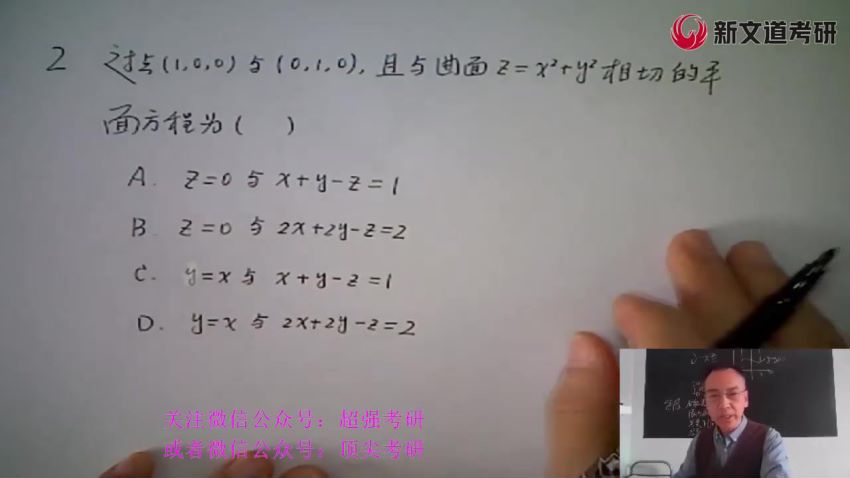 新文道考研
2 过点(1,0,0)与(0,1,0),且与曲面z=x²+y²相切的平
面方程为( )
A. z=0与x+y-z=1
B. z=0与2x+2y-z=2
C. y=x与x+y-z=1
D. y=x与2x+2y-z=2
关注微信公众号:超强考研
或者微信公众号:顶尖考研